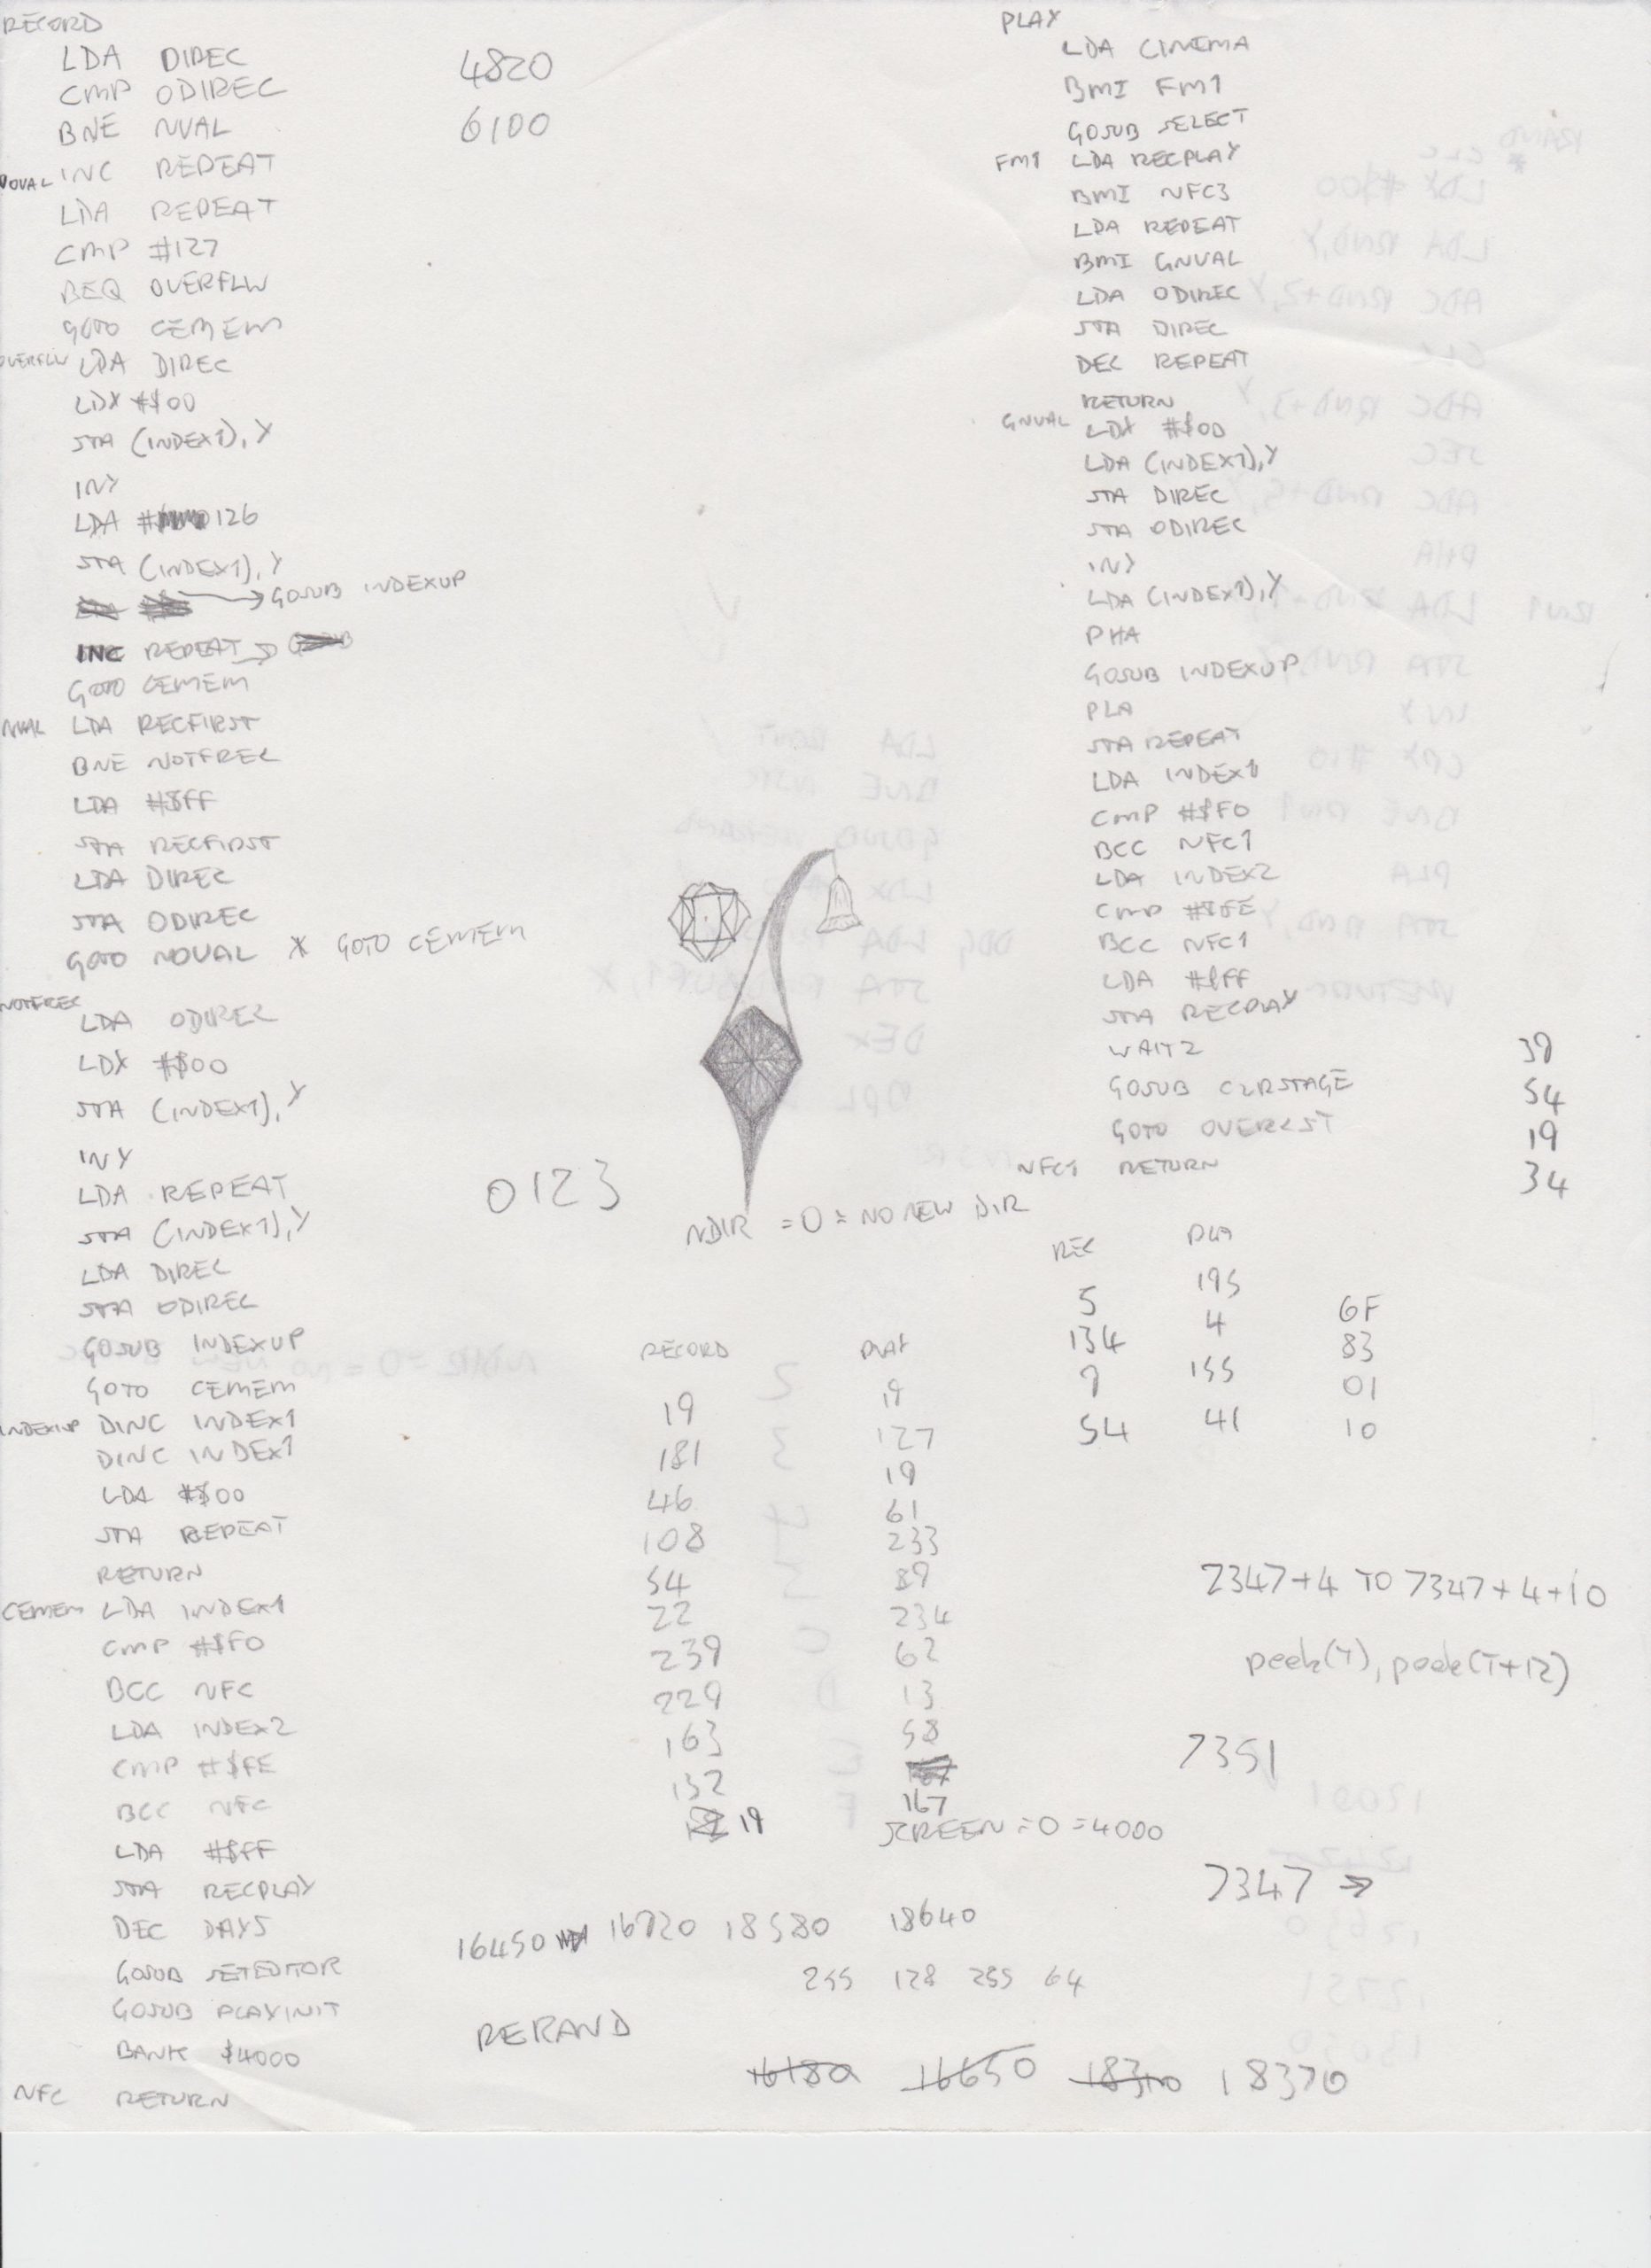 RECORD
LDA DIREC
CMP ODIREC
BNE NVAL
NOVAL INC REPEAT
LDA REPEAT
CMP #127
BEQ OVERFLW
GOTO CEMEM
OVERFLW LDA DIREC
LDX #$00
STA (INDEX1),Y
INY
LDA # 126
STA (INDEX1),Y
→ GOSUB INDEXUP
INC REPEAT →
GOTO CEMEM
NVAL LDA RECFIRST
BNE NOTFREC
LDA #$FF
STA RECFIRST
LDA DIREC
STA ODIREC
GOTO NOVAL * GOTO CEMEM
NOTFREC LDA ODIREC
LDX #$00
STA (INDEX1),Y
INY
LDA REPEAT
STA (INDEX1),Y
LDA DIREC
STA ODIREC
GOSUB INDEXUP
GOTO CEMEM
INDEXUP DINC INDEX1
DINC INDEX1
LDA #$00
STA REPEAT
RETURN
CEMEM LDA INDEX1
CMP #$F0
BCC NFC
LDA INDEX2
CMP #$FE
BCC NFC
LDA #$FF
STA RECPLAY
DEC DAYS
GOSUB SETEDITOR
GOSUB PLAYINIT
BANK $4000
NFC RETURN
4820
6100
0123
NDIR = 0 = NO NEW DIR
RECORD PLAY
19 19
181 127
46 19
108 61
54 233
22 89
239 234
229 62
163 13
132 58
19 167
SCREEN = 0 = 4000
16450 16720 18580 18640
255 128 255 64
RERAND
16180 16650 18310 18370
PLAY
LDA CINEMA
BMI FM1
GOSUB SELECT
FM1 LDA RECPLAY
BMI NFC3
LDA REPEAT
BMI GNVAL
LDA ODIREC
STA DIREC
DEC REPEAT
RETURN
GNVAL LDX #$00
LDA (INDEX1),Y
STA DIREC
STA ODIREC
INY
LDA (INDEX1),Y
PHA
GOSUB INDEXUP
PLA
STA REPEAT
LDA INDEX1
CMP #$F0
BCC NFC1
LDA INDEX2
CMP #$FE
BCC NFC1
LDA #$FF
STA RECPLAY
WAIT2
GOSUB CLRSTAGE
GOTO OVERLST
NFC1 RETURN
39
54
19
34
REC PLA
5 195 6F
134 4 83
9 155 01
54 41 10
7347+4 TO 7347+4+10
peek(T), peek(T+12)
7351
7347 →